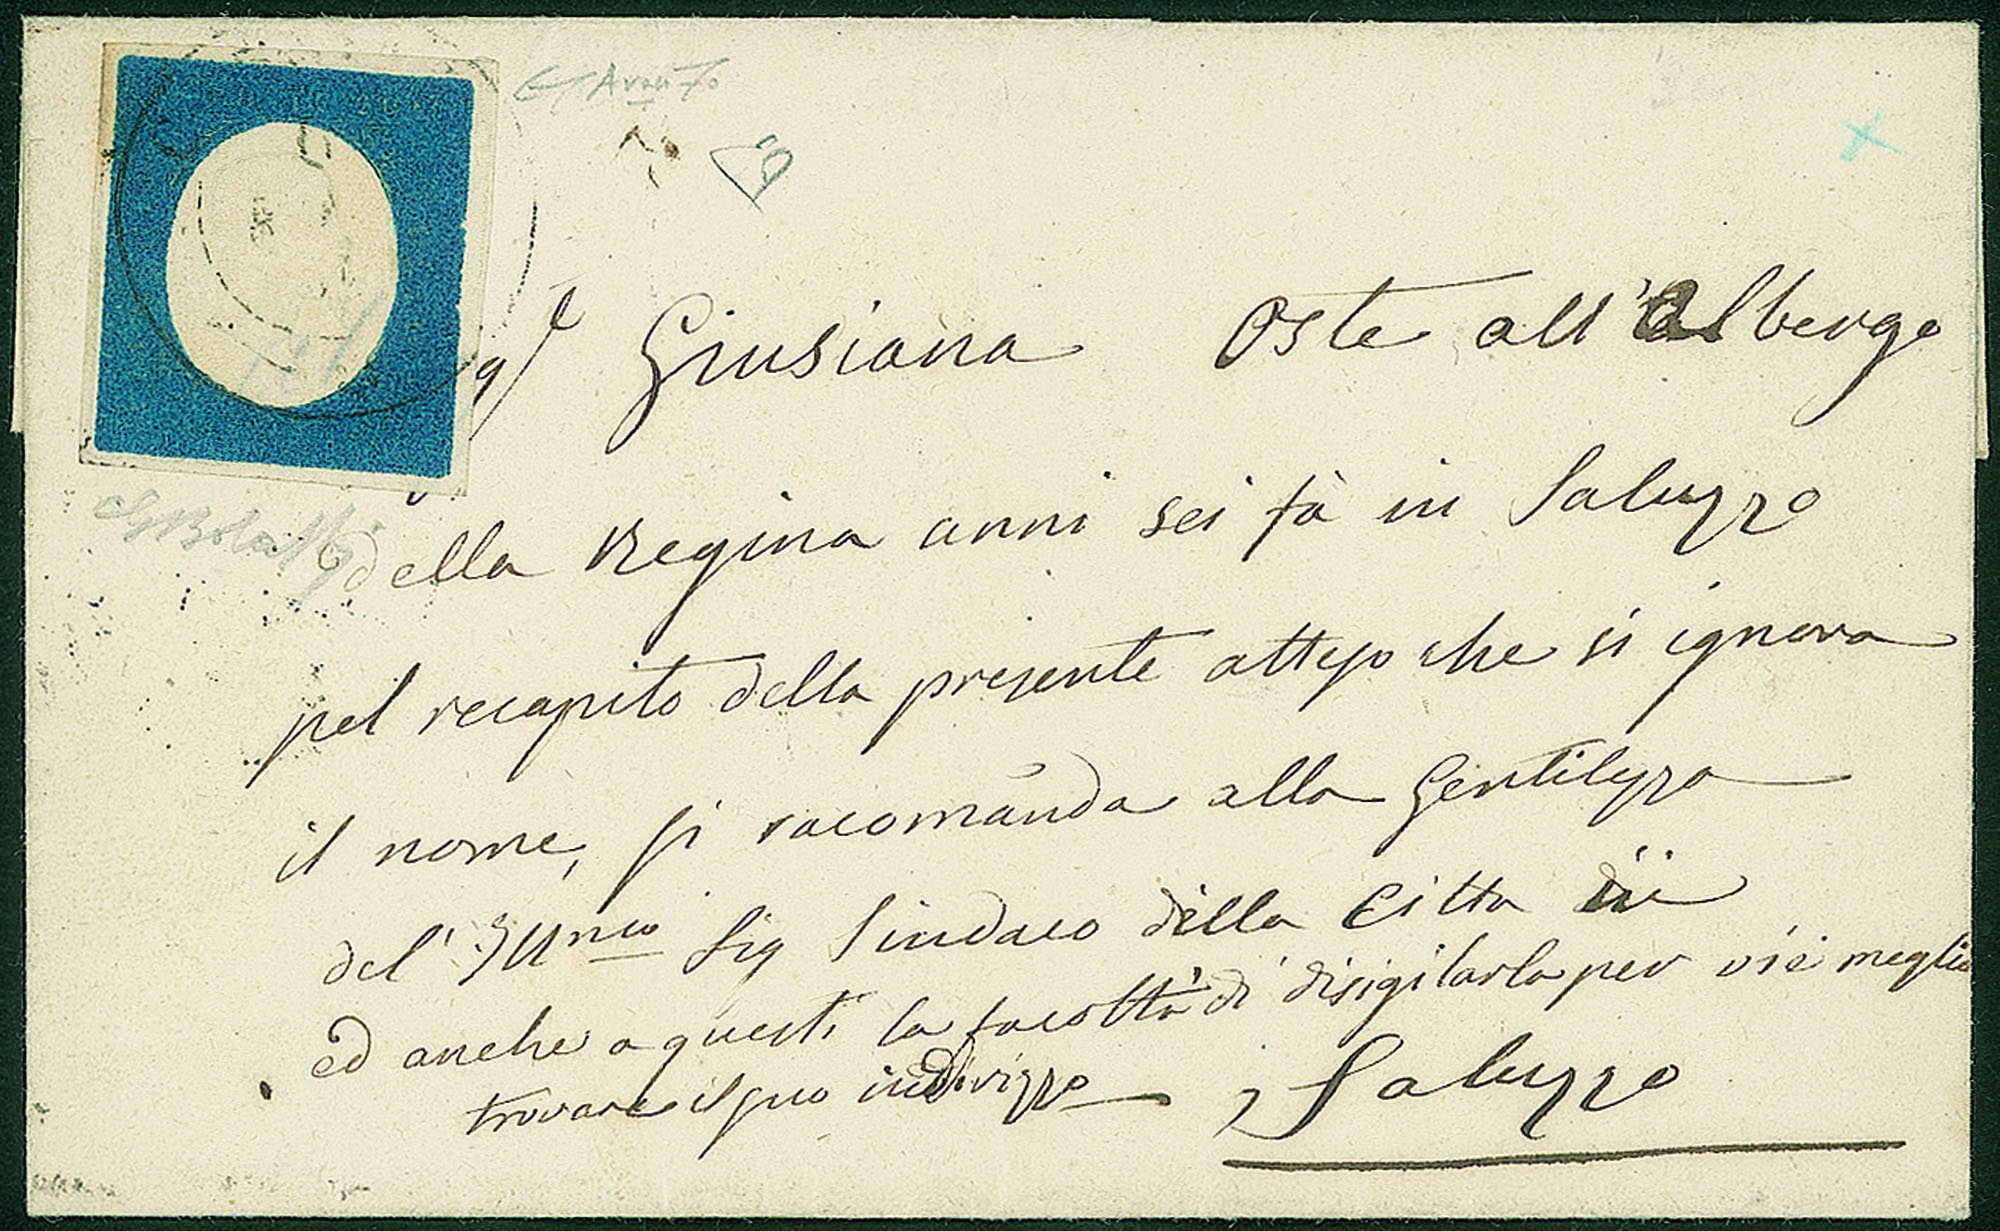 Giusiana Oste all'albergo
della Regina anni sei fà in Saluzzo
pel recapito della presente atteso che si ignora
il nome, si racomanda alla Gentilezza
del' Ill.mo Sig Sindaco della Citta di
ed anche a questi la facoltà di disigilarla per vie meglio
trovare il suo indirizzo, Saluzzo